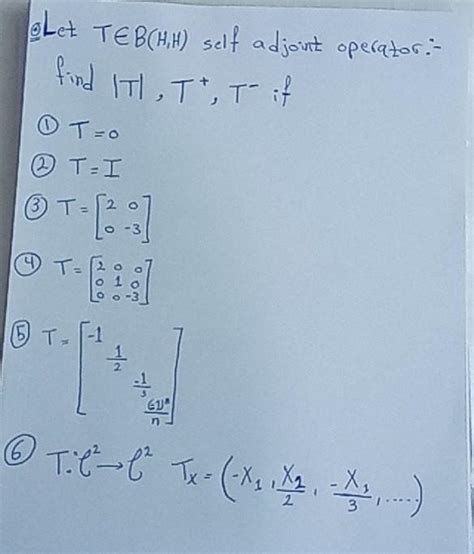 Let T∈B(H,H) self adjoint operator:-
find |T| , T⁺, T⁻ if
① T=0
② T=I
③ T= [2 0
0 -3]
④ T= [2 0 0
0 1 0
0 0 -3]
⑤ T= [-1
1/2
-1/3
(-1)ⁿ/n]
⑥ T: ℓ²→ℓ² Tx = (-X₁, X₂/2, -X₃/3, .....)